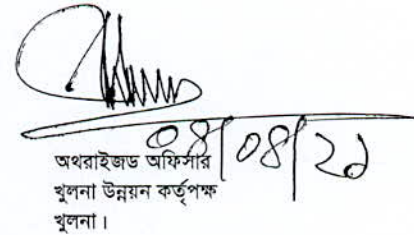 ০৪/০৪/২১
অথরাইজড অফিসার
খুলনা উন্নয়ন কর্তৃপক্ষ
খুলনা।